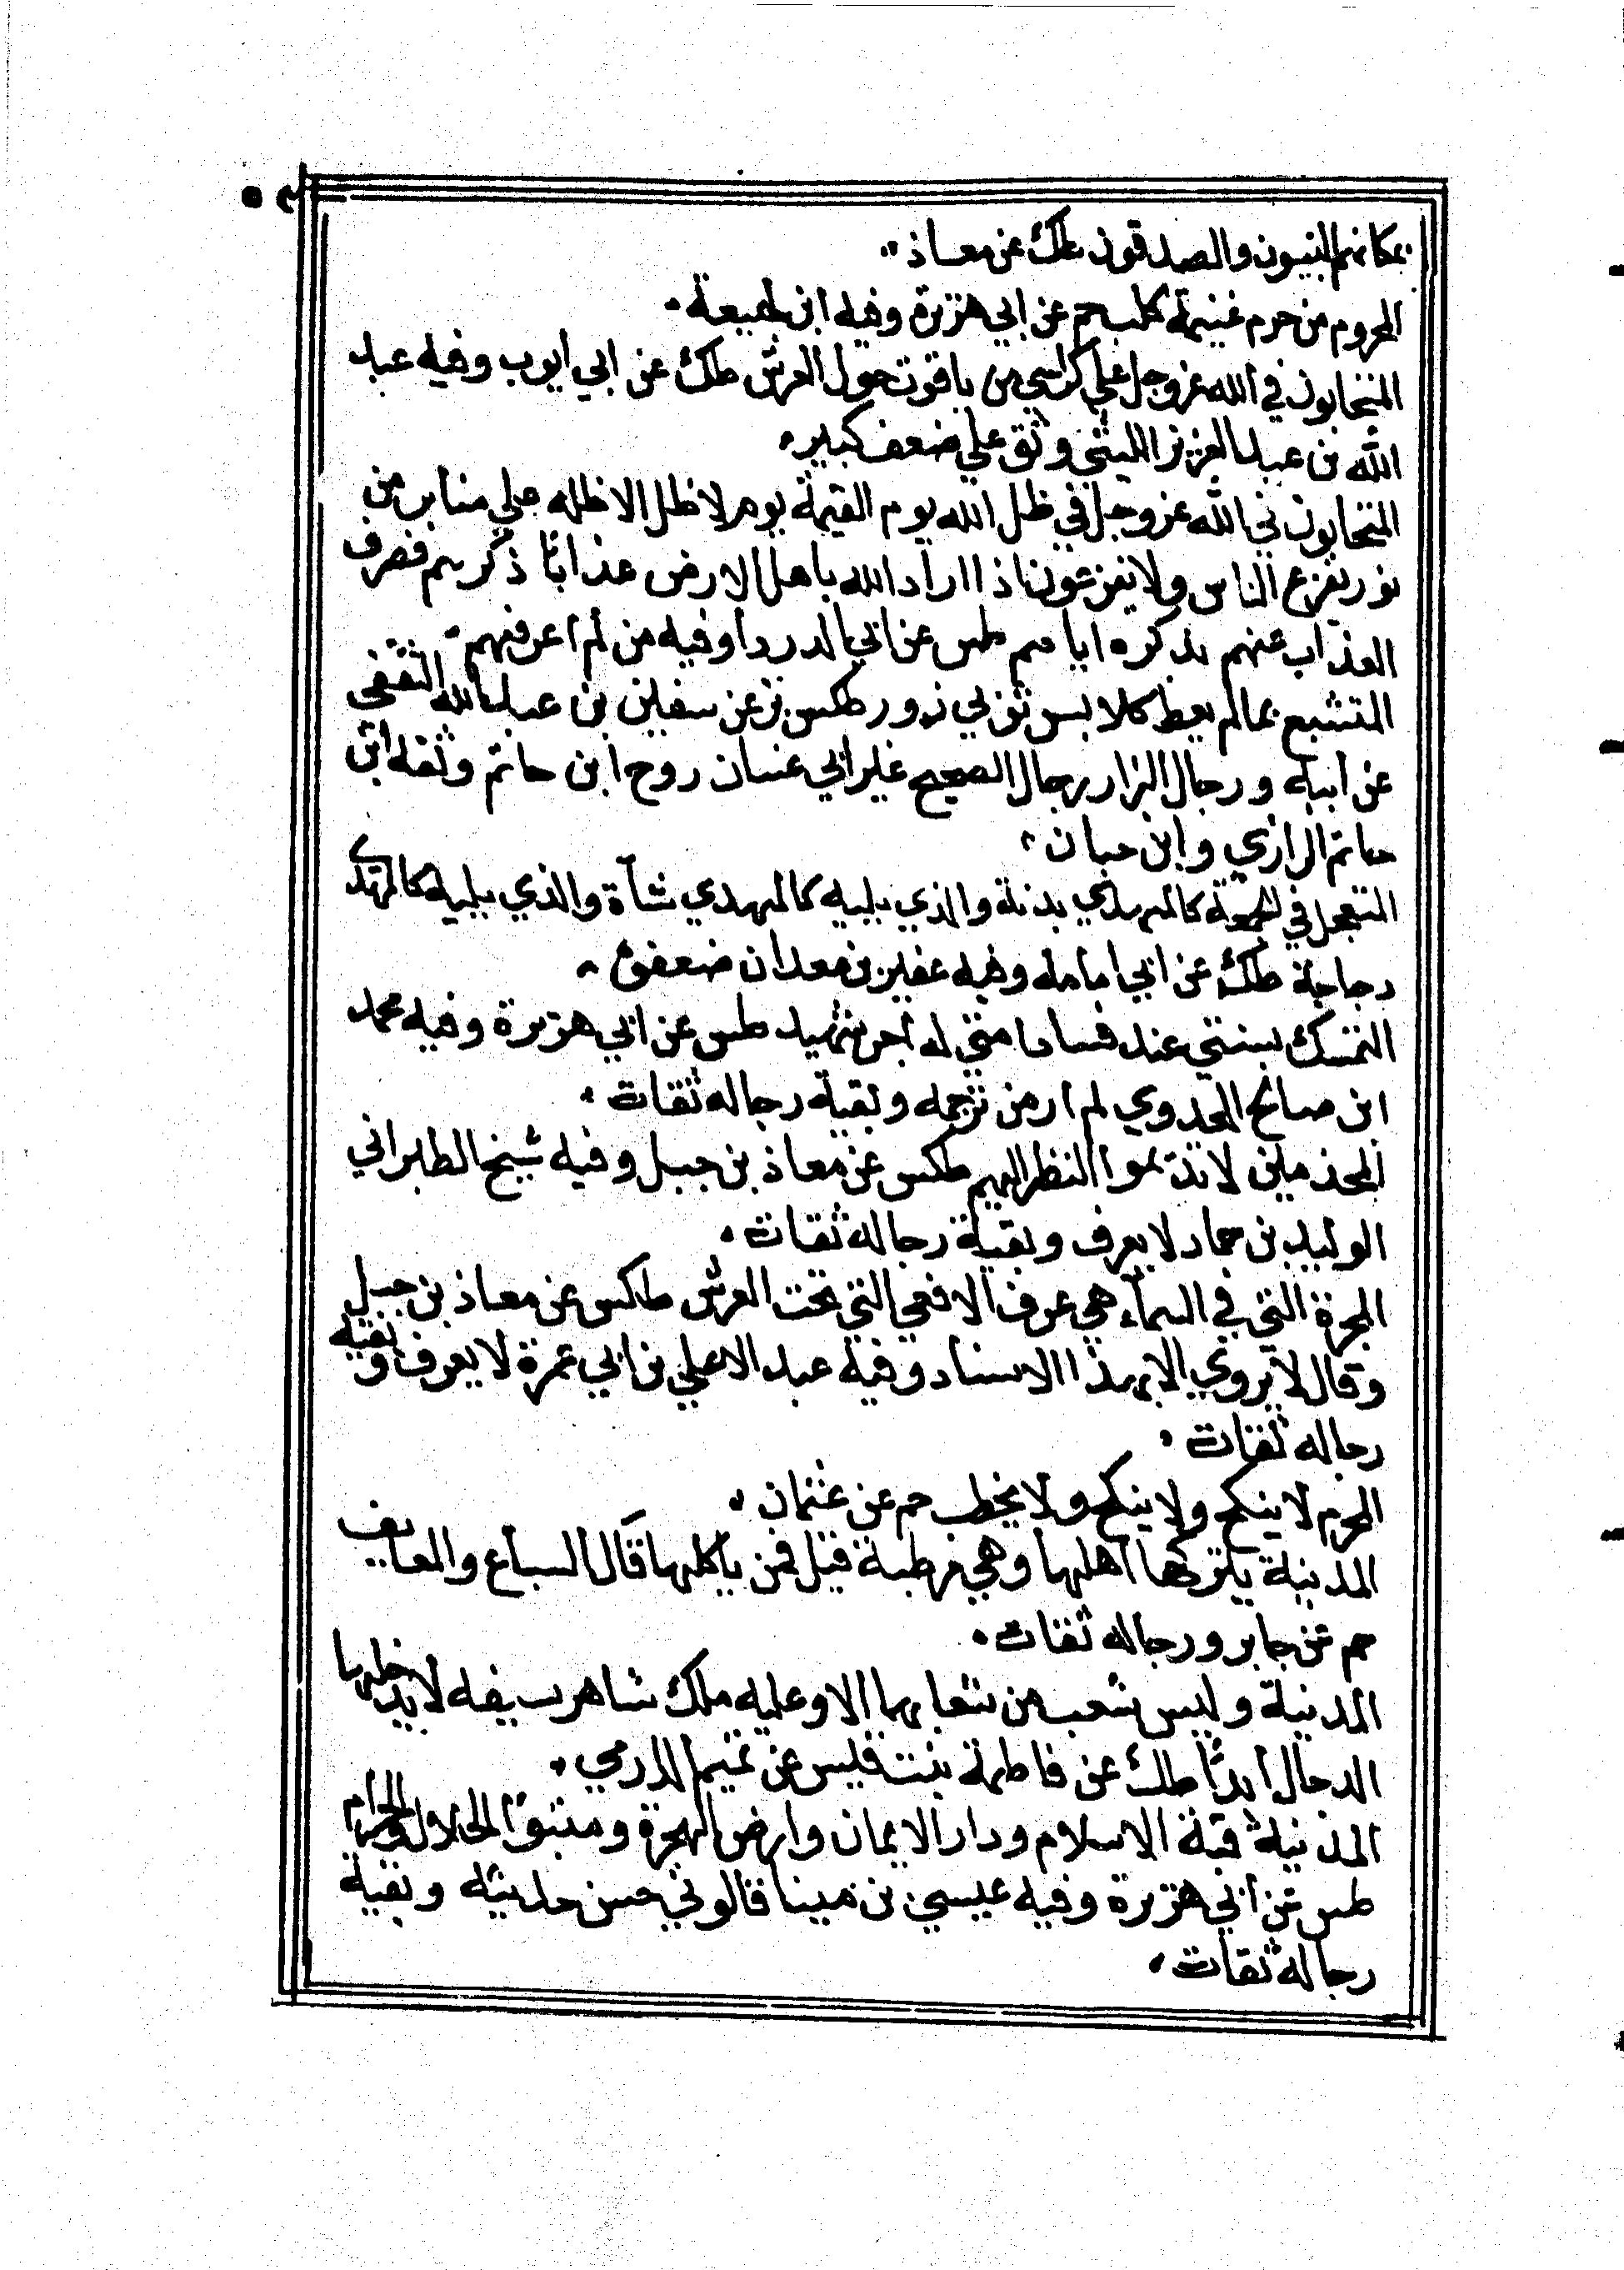 بمكانهم النبيون والصدقون طك عن معاذ
المحروم من حرم غنيمة كلب حم عن ابي هريرة وفيه ابن لهيعة
المتحابون في الله عز وجل علي كراسي من ياقوت حول العرش طك عن ابي ايوب وفيه عبد
الله بن عبد العزيز الليثي وثق علي ضعف كبير
المتحابون في الله عز وجل في ظل الله يوم القيمة يوم لا ظل الا ظله علي منابر من
نور يفزع الناس ولا يفزعون اذا اراد الله باهل الارض عذابًا ذكرهم فصرف
العذاب عنهم بذكره اياهم طس عن ابي الدرداو فيه من لم اعرفهم
المتشبع بمالم يعط كلابس ثوبي زور طكس بز عن سفين بن عبد الله الثقفي
عن ابيه ورجال البزار رجال الصحيح غير ابي غسان روح ابن حاتم وثقه ابن
حاتم الرازي وابن حبان
المتعجل في الجمعة كالمهدي بدنة والذي يليه كالمهدي شآة والذي يليه كالمهدي
دجاجة طك عن ابي امامه وفيه عفير بن معدان ضعفوه
المتمسك بسنتي عند فساد امتي له اجر شهيد طس عن ابي هريرة وفيه محمد
ابن صالح العدوي لم ار من ترجمه وبقية رجاله ثقات
المجذمين لا تديموا النظر اليهم طكس عن معاذ بن جبل وفيه شيخ الطبراني
الوليد بن حماد لا يعرف وبقية رجاله ثقات
المجرة التي في السمآء هي عرف الافعي التي تحت العرش طاكس عن معاذ بن جبل
وقال لا يروي الا بهذا الاسناد وفيه عبد الاعلي بن ابي عمرة لا يعرف وبقيه
رجاله ثقات
المحرم لا ينكح ولا ينكح ولا يخطب حم عن عثمان
المدينة يتركها اهلها وهي مرطبة قيل فمن ياكلها قال السباع والعايف
حم عن جابر ورجاله ثقات
المدينة وليس شعب من شعابها الا وعليه ملك شاهر سيفه لا يدخلها
الدجال ابدًا طك عن فاطمة بنت قيس عن تميم الدرمي
المدينة قبة الاسلام ودار الايمان وارض الهجرة ومتبوّا الحلال والحرام
طس عن ابي هريرة وفيه عيسي بن مينا قالوني حسن حديثه وبقية
رجاله ثقات